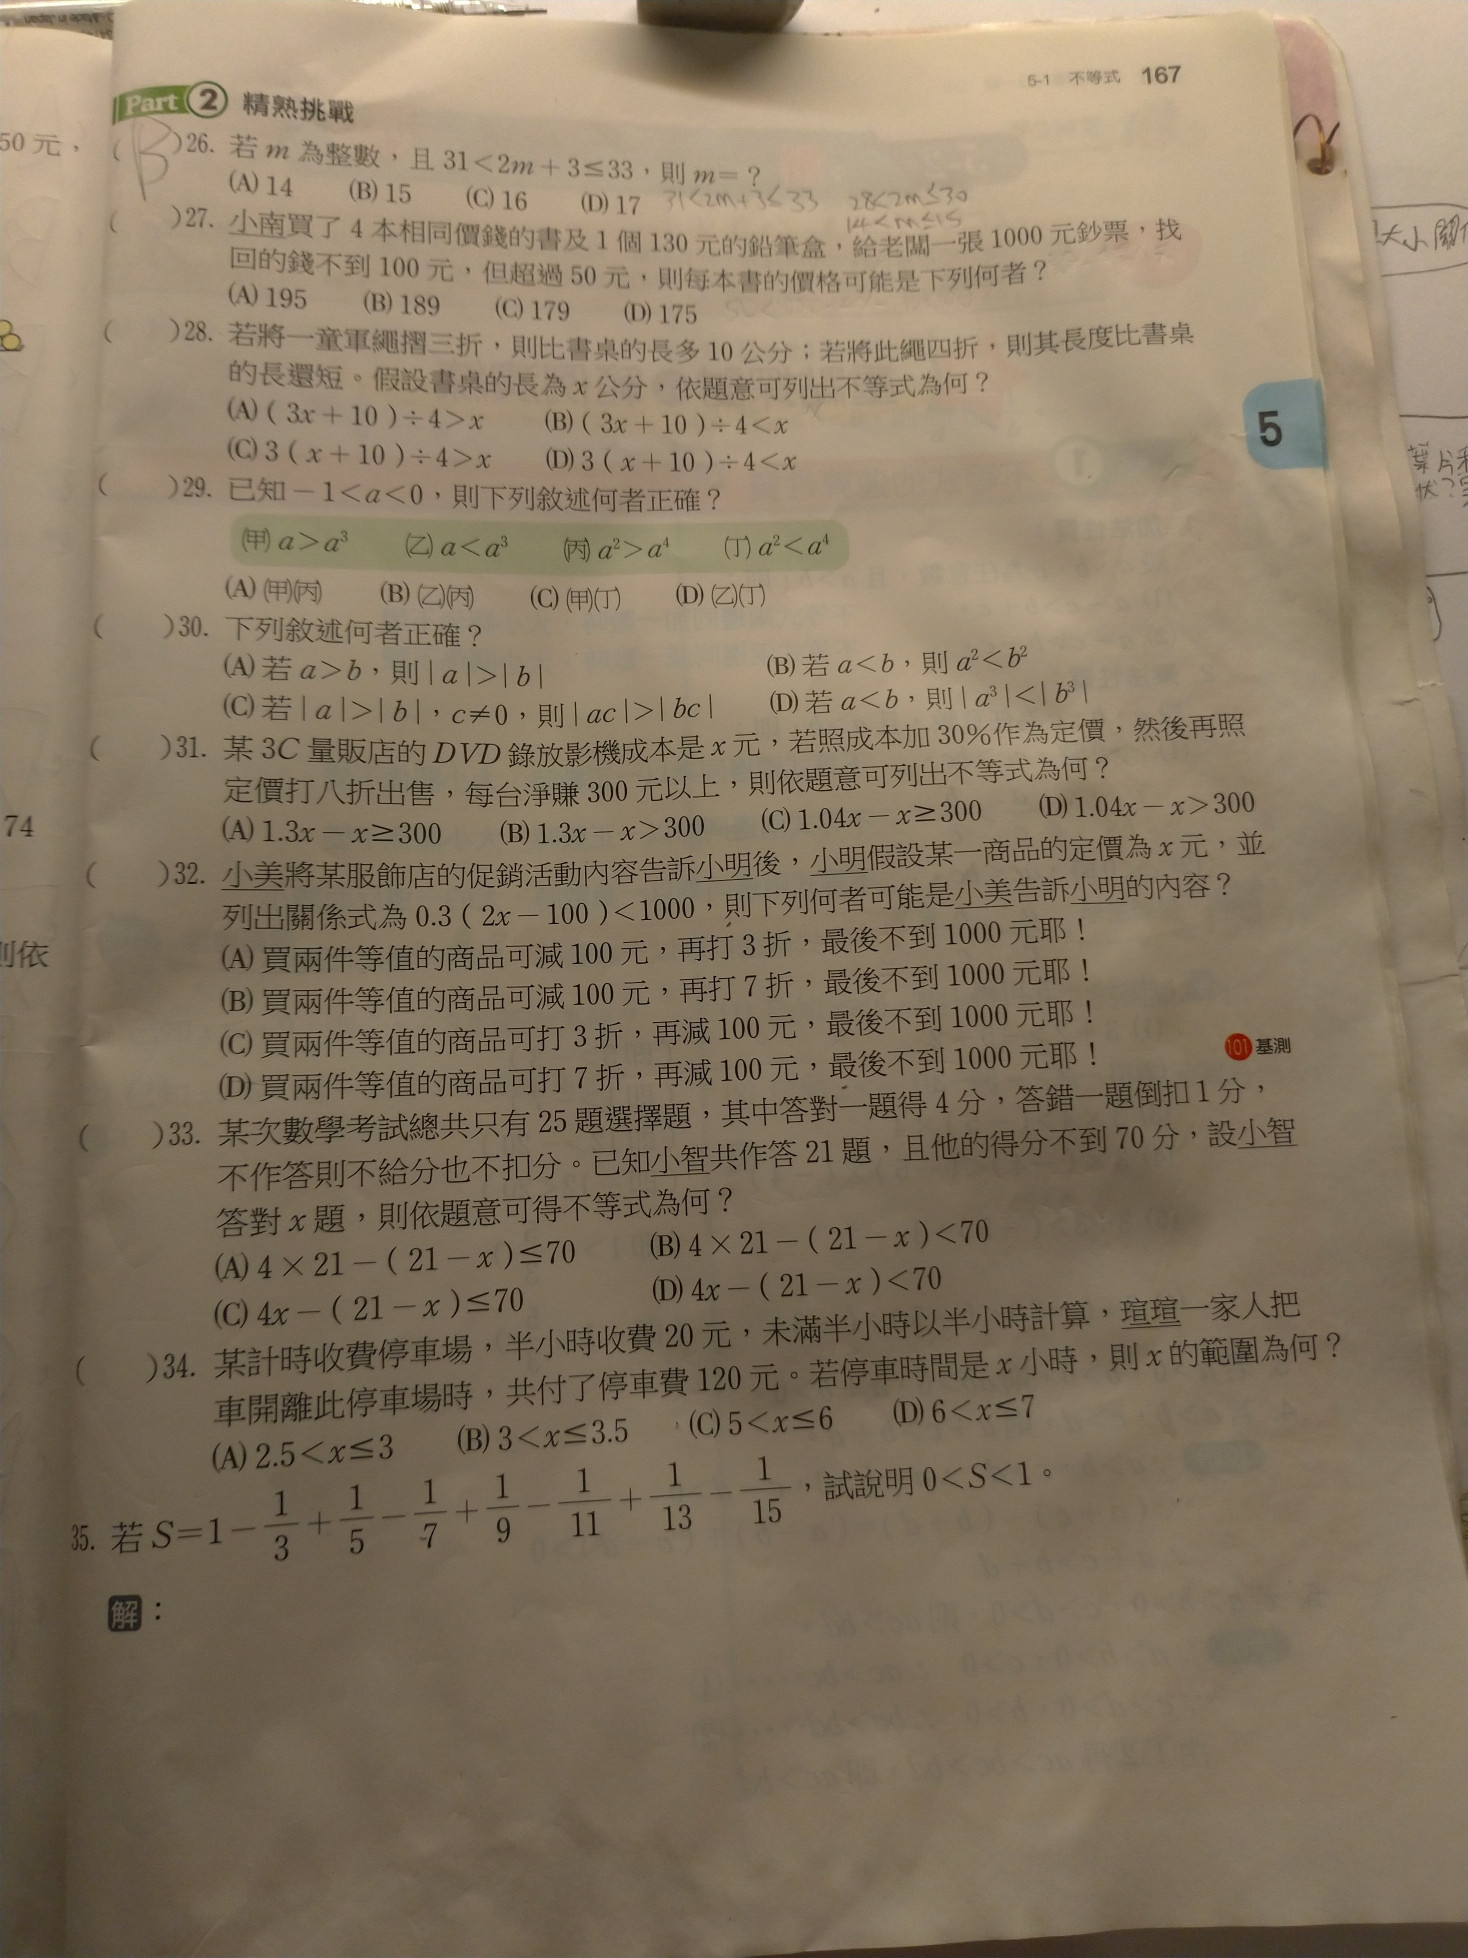 5-1 不等式 167
Part 2 精熟挑戰
50元，
(B)26. 若 m 為整數，且 31<2m+3≤33，則 m=？
(A) 14 (B) 15 (C) 16 (D) 17 31<2m+3≤33 28<2m≤30
14<m≤15
( )27. 小南買了 4 本相同價錢的書及 1 個 130 元的鉛筆盒，給老闆一張 1000 元鈔票，找
回的錢不到 100 元，但超過 50 元，則每本書的價格可能是下列何者？
(A) 195 (B) 189 (C) 179 (D) 175
( )28. 若將一童軍繩摺三折，則比書桌的長多 10 公分；若將此繩四折，則其長度比書桌
的長還短。假設書桌的長為 x 公分，依題意可列出不等式為何？
(A) ( 3x+10 )÷4>x (B) ( 3x+10 )÷4<x
(C) 3 ( x+10 )÷4>x (D) 3 ( x+10 )÷4<x
5
( )29. 已知 −1<a<0，則下列敘述何者正確？
(甲) a>a³ (乙) a<a³ (丙) a²>a⁴ (丁) a²<a⁴
(A) (甲)(丙) (B) (乙)(丙) (C) (甲)(丁) (D) (乙)(丁)
( )30. 下列敘述何者正確？
(A) 若 a>b，則 | a |>| b | (B) 若 a<b，則 a²<b²
(C) 若 | a |>| b |，c≠0，則 | ac |>| bc | (D) 若 a<b，則 | a³ |<| b³ |
( )31. 某 3C 量販店的 DVD 錄放影機成本是 x 元，若照成本加 30%作為定價，然後再照
定價打八折出售，每台淨賺 300 元以上，則依題意可列出不等式為何？
(A) 1.3x−x≥300 (B) 1.3x−x>300 (C) 1.04x−x≥300 (D) 1.04x−x>300
74
( )32. 小美將某服飾店的促銷活動內容告訴小明後，小明假設某一商品的定價為 x 元，並
列出關係式為 0.3 ( 2x−100 )<1000，則下列何者可能是小美告訴小明的內容？
則依
(A) 買兩件等值的商品可減 100 元，再打 3 折，最後不到 1000 元耶！
(B) 買兩件等值的商品可減 100 元，再打 7 折，最後不到 1000 元耶！
(C) 買兩件等值的商品可打 3 折，再減 100 元，最後不到 1000 元耶！
(D) 買兩件等值的商品可打 7 折，再減 100 元，最後不到 1000 元耶！ 101 基測
( )33. 某次數學考試總共只有 25 題選擇題，其中答對一題得 4 分，答錯一題倒扣 1 分，
不作答則不給分也不扣分。已知小智共作答 21 題，且他的得分不到 70 分，設小智
答對 x 題，則依題意可得不等式為何？
(A) 4×21−( 21−x )≤70 (B) 4×21−( 21−x )<70
(C) 4x−( 21−x )≤70 (D) 4x−( 21−x )<70
( )34. 某計時收費停車場，半小時收費 20 元，未滿半小時以半小時計算，瑄瑄一家人把
車開離此停車場時，共付了停車費 120 元。若停車時間是 x 小時，則 x 的範圍為何？
(A) 2.5<x≤3 (B) 3<x≤3.5 (C) 5<x≤6 (D) 6<x≤7
35. 若 S=1−1/3+1/5−1/7+1/9−1/11+1/13−1/15，試說明 0<S<1。
解：